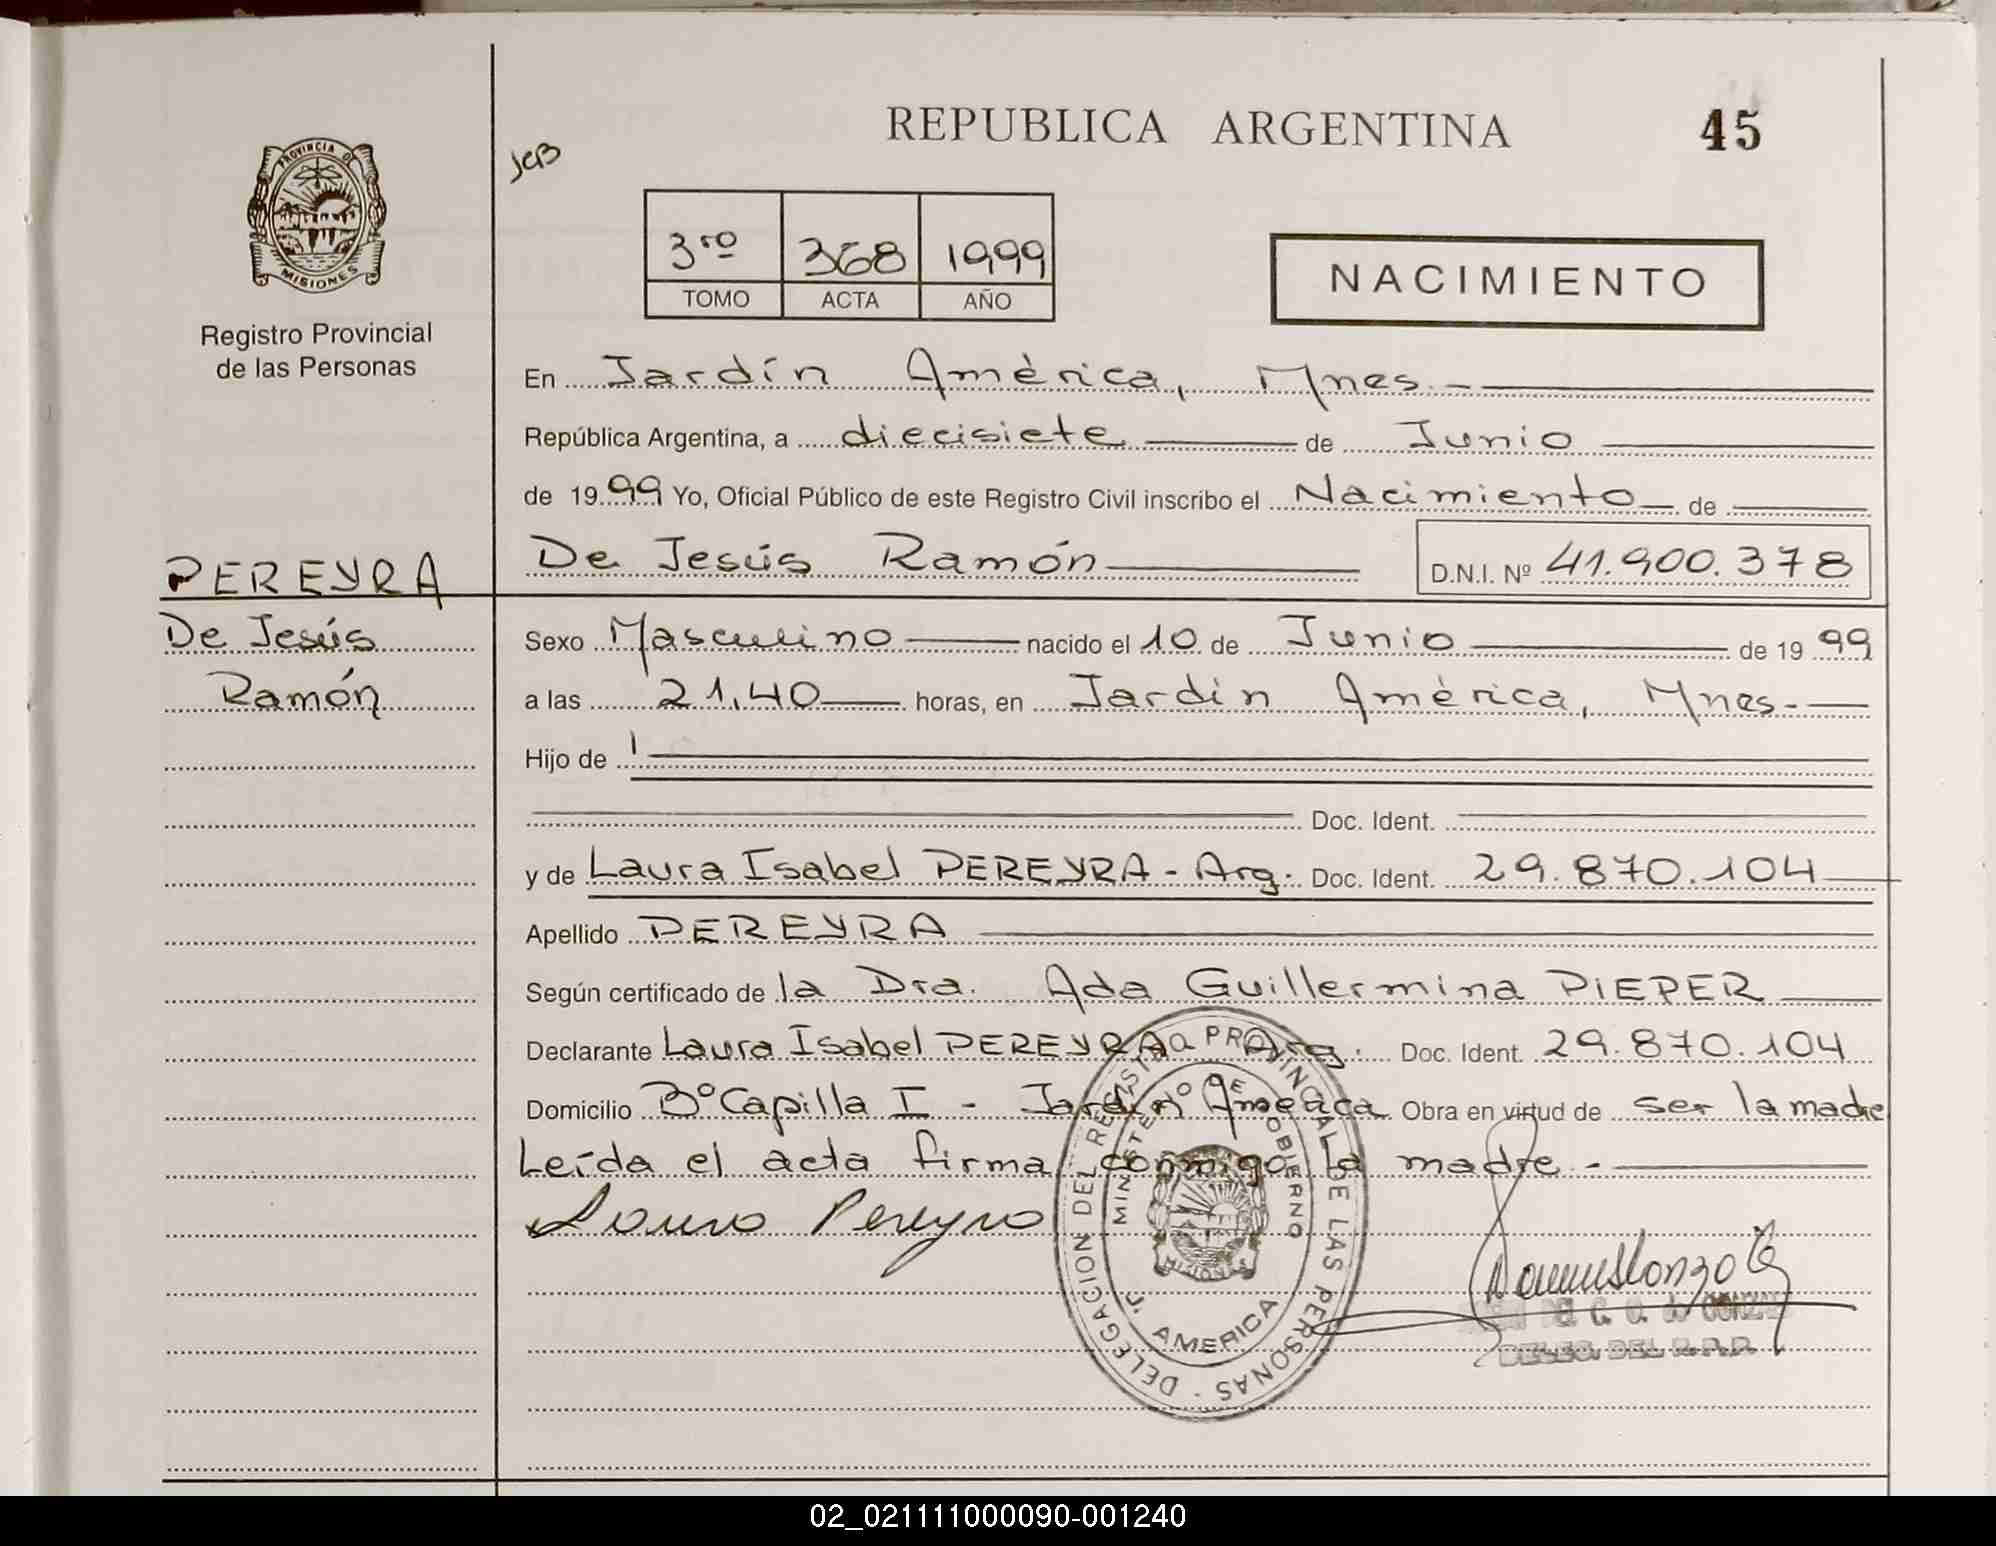 REPUBLICA ARGENTINA
45
JCB
PROVINCIA D
MISIONES
Registro Provincial
de las Personas
3ro 368 1999
TOMO ACTA AÑO
NACIMIENTO
En Jardín América, Mnes.-
República Argentina, a diecisiete de Junio
de 1999 Yo, Oficial Público de este Registro Civil inscribo el Nacimiento de
De Jesús Ramón
D.N.I. Nº 41.900.378
PEREYRA
De Jesús
Ramón
Sexo Masculino nacido el 10 de Junio de 1999
a las 21,40 horas, en Jardín América, Mnes.-
Hijo de
Doc. Ident.
y de Laura Isabel PEREYRA - Arg. Doc. Ident. 29.870.104
Apellido PEREYRA
Según certificado de la Dra. Ada Guillermina PIEPER
Declarante Laura Isabel PEREYRA Arg. Doc. Ident. 29.870.104
Domicilio Bº Capilla I - Jardín América Obra en virtud de ser la madre
Leída el acta firma conmigo la madre.-
Laura Pereyra
DELEGACION DEL REGISTRO PROVINCIAL DE LAS PERSONAS
MINISTERIO DE GOBIERNO
MISIONES
J. AMERICA
DEL C. G. de GONZALEZ
DELEG. DEL R.P.P.
02_021111000090-001240